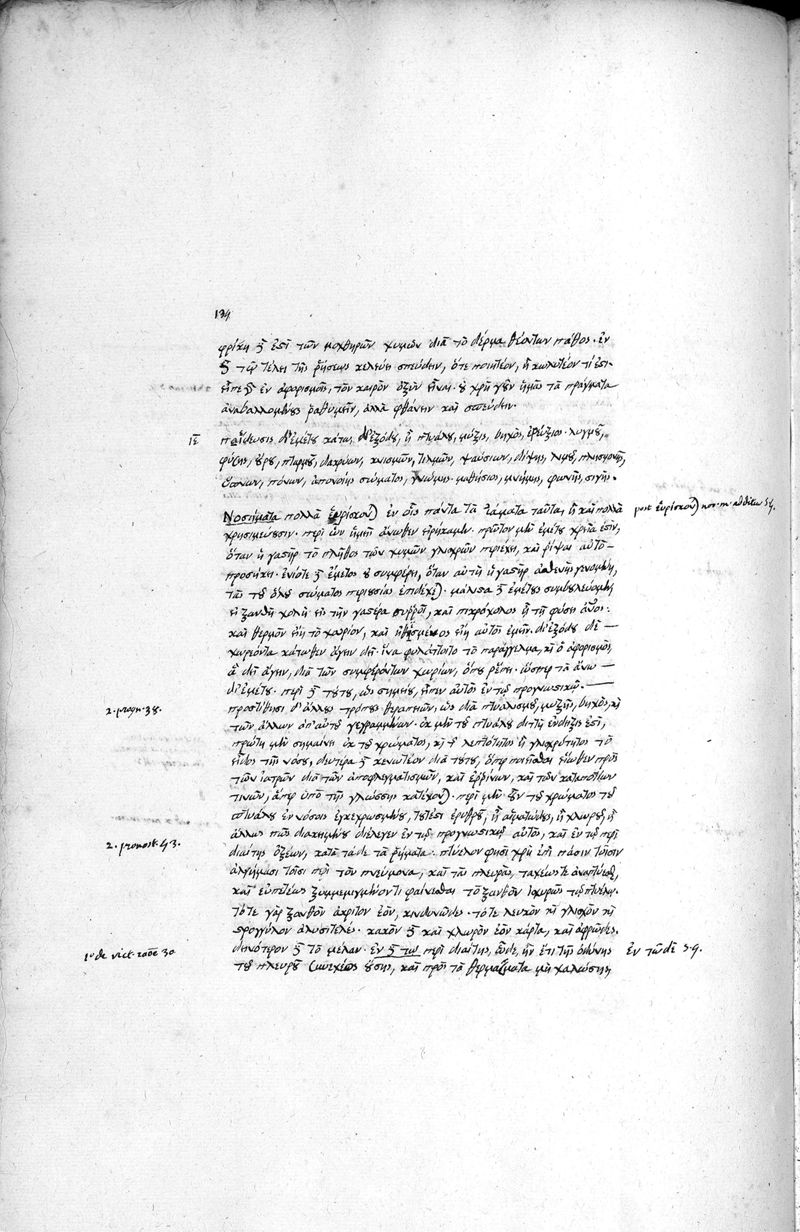 134
φρίκη δὲ ἐστὶ τῶν μοχθηρῶν χυμῶν διὰ τὸ δέρμα θεόντων πάθος. ἐν
δὲ τῷ τέλει τῆς ῥήσεως κελεύει σπεύδειν, ὅτε ποιητέον, ἢ κωλυτέον τί ἐστι.
εἶπε δὲ ἐν ἀφορισμοῖς, τὸν καιρὸν ὀξὺν εἶναι. οὐ χρὴ γοῦν ἡμᾶς τὰ πράγματα
ἀναβαλλομένους ῥαθυμεῖν, ἀλλὰ φθάνειν καὶ σπεύδειν.
ιε
παίδευσις ἐμέτου κάτω διεξόδου, ἢ πτυάλου, μύξης, βηχὸς, ἐρεύξιος, λυγμοῦ,
φύσης, οὔρου, πταρμοῦ, δακρύων, κνισμῶν, τιλμῶν, ψαύσιων, δίψης, λιμοῦ, πλησμονῆς,
ὕπνων, πόνων, ἀπονοίης σώματος, γνώμης μαθήσιος, μνήμης, φωνῆς, σιγῆς.
Νοσήματα πολλὰ εὑρίσκονται ἐν οἷς πάντα τὰ ἰάματα ταῦτα, ἢ καὶ πολλὰ
post εὑρίσκονται
χρησιμεύουσιν. περὶ ὧν ἡμεῖς ἄνωθεν εἰρήκαμεν. πρῶτον μὲν ἐμέτου χρεία ἐστὶν,
ὅταν ἡ γαστὴρ τὸ πλῆθος τῶν χυμῶν γλισχρῶν περιέχῃ, καὶ ῥίψαι αὐτὸ
προσήκει. ἐνίοτε δὲ ἔμετος οὐ συμφέρει, ὅταν αὐτὴ ἡ γαστὴρ ἀσθενὴς γενομένη,
τὰς τοῦ ὅλου σώματος περισσίας ἐπιδέχεται. μάλιστα δὲ ἐμέτους συμβουλεύομεν,
εἰ ξανθὴ χολὴ εἰς τὴν γαστέρα συρρεῖ, καὶ πικρόχολος ᾖ τῇ φύσει ἄνθρωπος.
καὶ θερμὸν εἴη τὸ χωρίον, καὶ εἰθισμένος εἴη αὐτὸς ἐμεῖν. διεξόδου δὲ
χωρέοντα κάτωθεν ἄγειν δεῖ. ἵνα φυλάττοιτο τὸ παράγγελμα, καὶ ὁ ἀφορισμὸς,
ἃ δεῖ ἄγειν, διὰ τῶν συμφερόντων χωρίων, ὅπου ῥέπει. ὥσπερ τὰ ἄνω
δι' ἐμέτου. περὶ δὲ τούτου, ὡς σημείου, εἶπεν αὐτὸς ἐν τῷ προγνωστικῷ.
2. progn. 38.
προστίθησι δ' ἄλλους τρόπους θεραπειῶν, ὡς διὰ πτυαλισμοῦ, μύξης, βηχὸς, καὶ
τῶν ἄλλων ὑπ' αὐτοῦ γεγραμμένων. ἐκ μὲν τοῦ πτυάλου διττὴ ἔνδειξίς ἐστι,
πρώτη μὲν σημαίνει ἐκ τοῦ χρώματος, καὶ τῆς λεπτότητος ἢ γλισχρότητος τὸ
εἶδος τῆς νόσου, δευτέρα δὲ κενωτέον διὰ τούτου, ὅπερ ποιεῖσθαι εἴωθεν πρὸς
τῶν ἰατρῶν διὰ τῶν ἀποφλεγματισμῶν, καὶ ἐρρίνων, καὶ τῶν καταποτίων
τινῶν, ἅπερ ὑπὸ τῆς γλώσσης κατέχονται. περὶ μὲν οὖν τοῦ χρώματος τοῦ
πτυάλου ἐν νόσοις ἐγκεχρωσμένου, τουτέστι ἐρυθροῦ, ἢ αἱματώδους, ἢ χλωροῦ, ἢ
2. pronost. 43.
ἄλλως πῶς διακειμένου διέλεγεν ἐν τῷ προγνωστικῷ αὐτὸς, καὶ ἐν τῷ περὶ
διαίτης ὀξέων, κατὰ τάδε τὰ ῥήματα. πτύελον φησὶ χρὴ ἐπὶ πᾶσιν τοῖσιν
ἀλγήμασι τοῖσι περὶ τὸν πνεύμονα, καὶ τὰς πλευρὰς, ταχέως τε ἀναπτύεσθαι,
καὶ εὐπετέως ξυμμεμιγμένον τι φαίνεσθαι τὸ ξανθὸν ἰσχυρῶς τῷ πτυέλῳ.
τό τε γὰρ ξανθὸν ἄκριτον ἐὸν, κινδυνῶδες. τό τε λευκὸν καὶ γλίσχρον καὶ
στρογγύλον ἀλυσιτελές. κακὸν δὲ καὶ χλωρὸν ἐὸν κάρτα, καὶ ἀφρῶδες.
1º de vict. 30
δεινότερον δὲ τὸ μέλαν. ἐν δὲ τῷ περὶ διαίτης, ὧδε, ἢν ἔτι τῆς ὀδύνης
ἐν τῶδε 59.
τοῦ πλευροῦ συνεχέος οὔσης, καὶ πρὸς τὰ θερμάσματα μὴ χαλώσης,